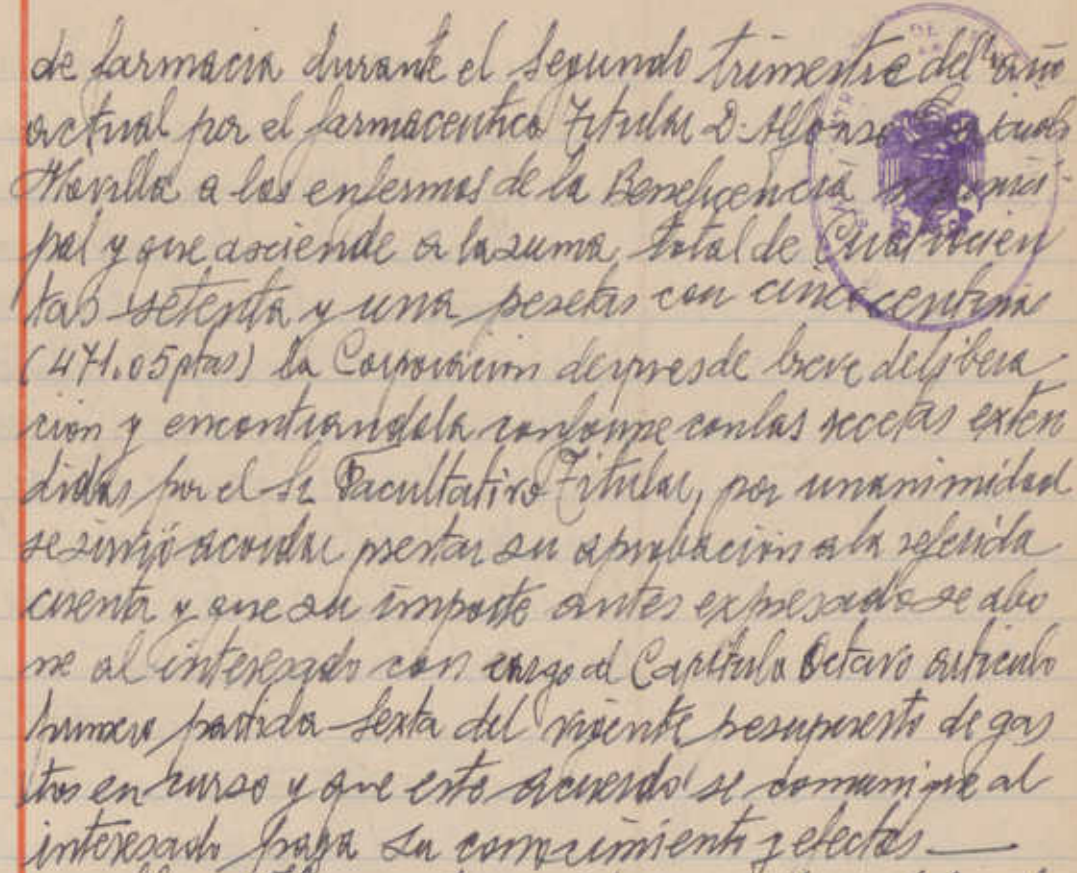 de farmacia durante el segundo trimestre del año
actual por el farmaceutico Titular D. Alfonso
Morilla a los enfermos de la Beneficencia munici-
pal y que asciende a la suma total de Cuatrocien
tas setenta y una pesetas con cinco centimos
(471.05 ptas) la Corporacion despues de breve delibera
cion y encontrandola conforme con las recetas exten
didas por el Sr Facultativo Titular, por unanimidad
se sirvió acordar prestar su aprobacion a la referida
cuenta y que su importe antes expresado se abo
ne al interesado con cargo al Capitulo Octavo articulo
primero partida Sexta del vigente presupuesto de gas
tos en curso y que este acuerdo se comunique al
interesado para su conocimiento y efectos —